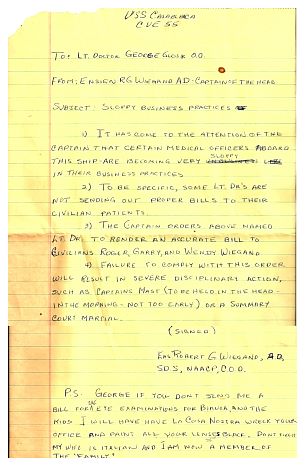 USS CASABLANCA
CVE 55
TO: LT. DOCTOR GEORGE GLOSS O.D.
FROM: ENSIGN RG WIEGAND AD-CAPTAIN OF THE HEAD
SUBJECT: SLOPPY BUSINESS PRACTICES
1) IT HAS COME TO THE ATTENTION OF THE
CAPTAIN THAT CERTAIN MEDICAL OFFICERS ABOARD
THIS SHIP ARE BECOMING VERY SLOPPY
IN THEIR BUSINESS PRACTICES
2) TO BE SPECIFIC, SOME LT. DR'S ARE
NOT SENDING OUT PROPER BILLS TO THEIR
CIVILIAN PATIENTS.
3) THE CAPTAIN ORDERS ABOVE NAMED
LT. DR. TO RENDER AN ACCURATE BILL TO
CIVILIANS ROGER, GARRY, AND WENDY WIEGAND.
4) FAILURE TO COMPLY WITH THIS ORDER
WILL RESULT IN SEVERE DISCIPLINARY ACTION,
SUCH AS CAPTAINS MAST (TO BE HELD IN THE HEAD -
IN THE MORNING - NOT TOO EARLY) OR A SUMMARY
COURT MARTIAL.
(SIGNED)
ROBERT G WIEGAND, A.D.
SDS, NAACP, C.O.D.
P.S. GEORGE IF YOU DONT SEND ME A
BILL FOR THE EYE EXAMINATIONS FOR AND THE
KIDS I WILL HAVE LA COSA NOSTRA WRECK YOUR
OFFICE AND PAINT ALL YOUR LENSES BLACK. DONT FORGET
MY WIFE IS ITALIAN AND I AM NOW A MEMBER OF
THE "FAMILY"